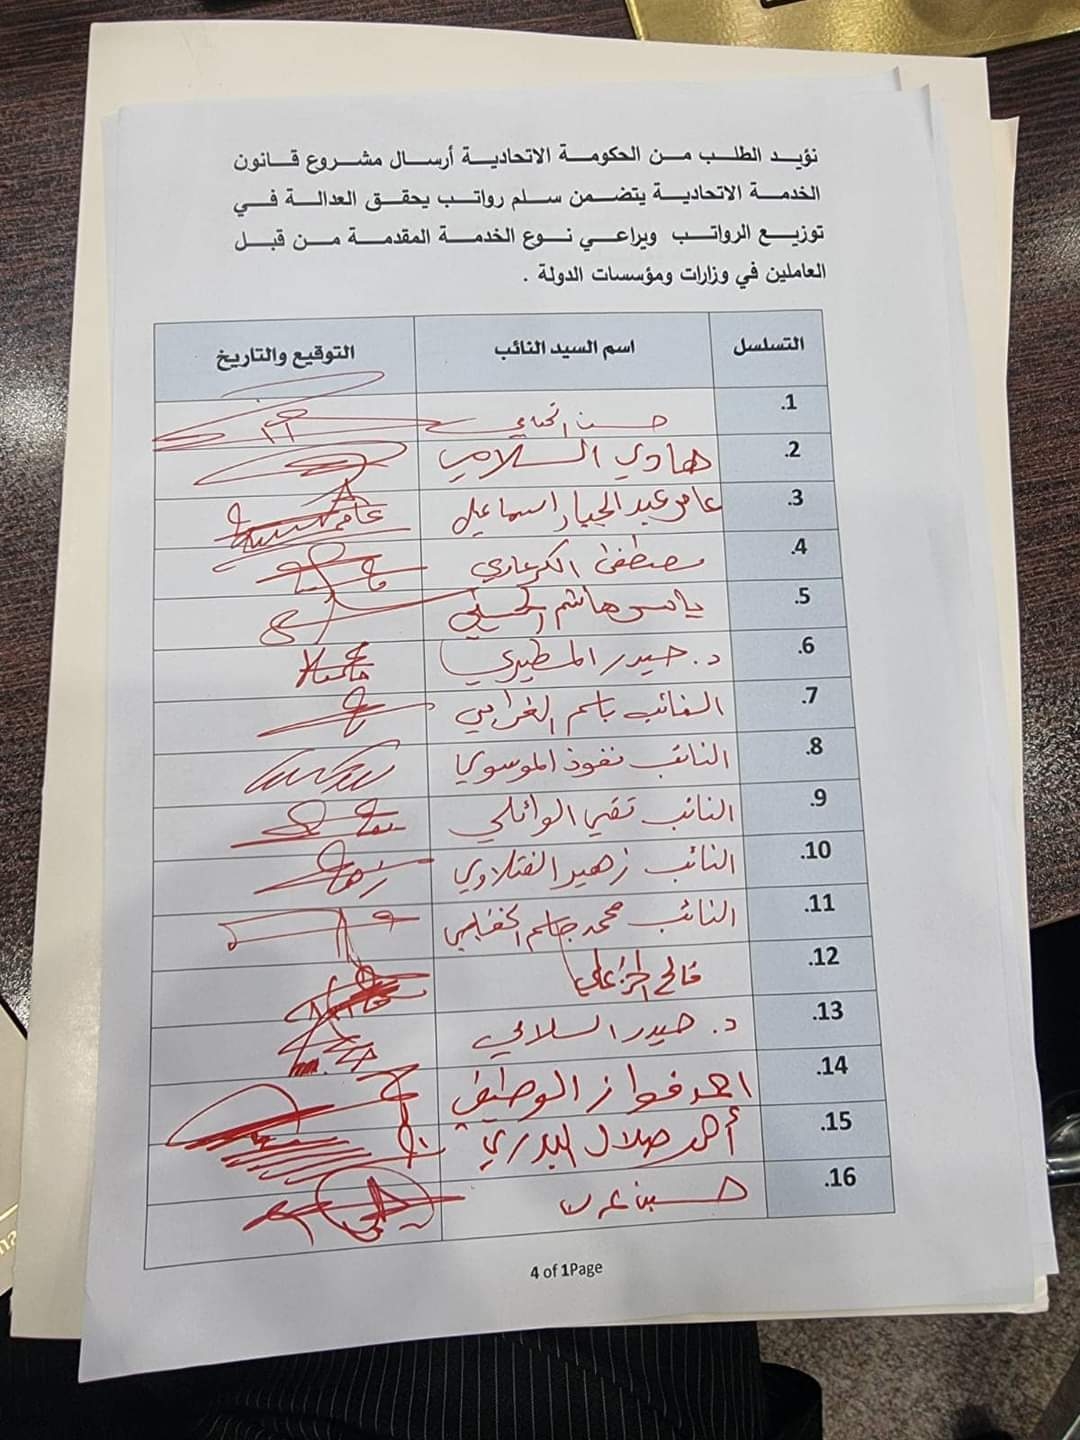 نؤيد الطلب من الحكومة الاتحادية أرسال مشروع قانون
الخدمة الاتحادية يتضمن سلم رواتب يحقق العدالة في
توزيع الرواتب ويراعي نوع الخدمة المقدمة من قبل
العاملين في وزارات ومؤسسات الدولة .
التسلسل اسم السيد النائب التوقيع والتاريخ
1. حسن
2. هادي السلامي
3. عامر عبد الجبار اسماعيل عامر
4. مصطفى الكرعاوي
5. ياسر هاشم الحسيني
6. د. حيدر المطيري
7. النائب باسم الغرابي
8. النائب نفوذ الموسوي
9. النائب تقي الوائلي
10. النائب زهير الفتلاوي
11. النائب محمد جاسم الخفاجي
12. فالح الخزعلي
13. د. حيدر السلامي
14. احمد فواز الوطيفي
15. أحمد صلال البدري
16. حسين عرب
4 of 1Page